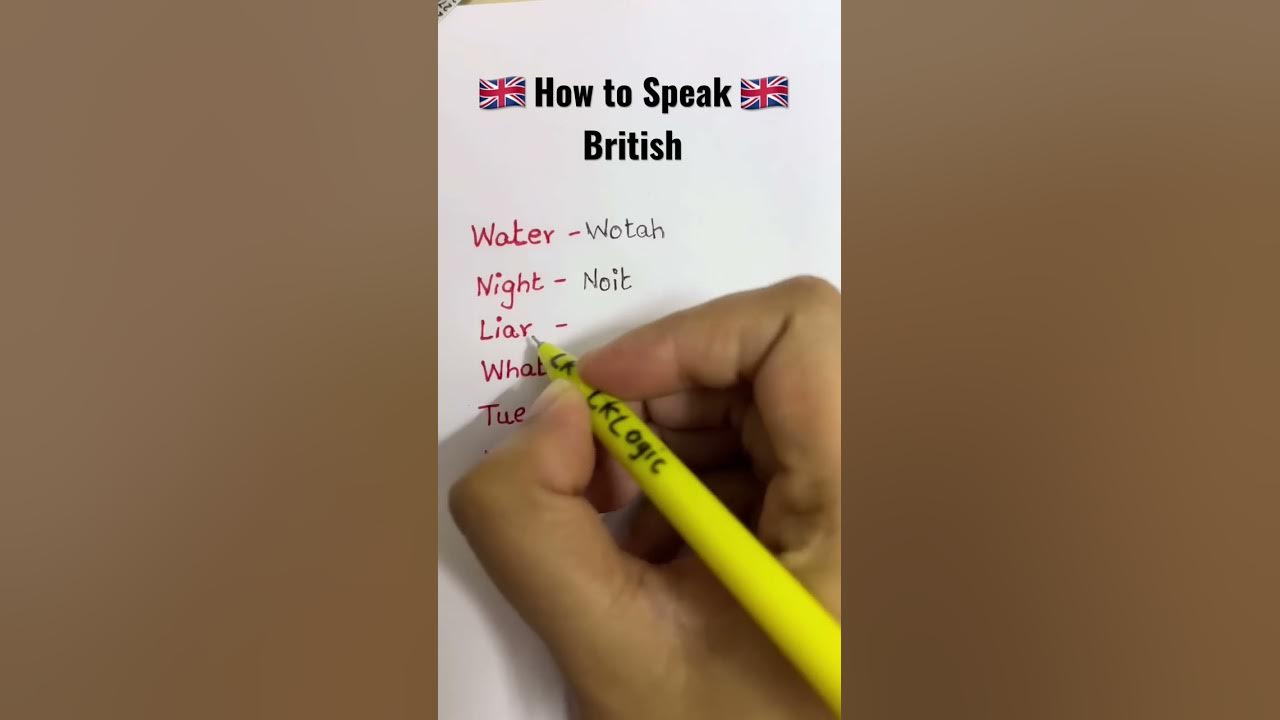 🇬🇧 How to Speak 🇬🇧
British
Water - Wotah
Night - Noit
Liar -
What
Tue
CKLogic